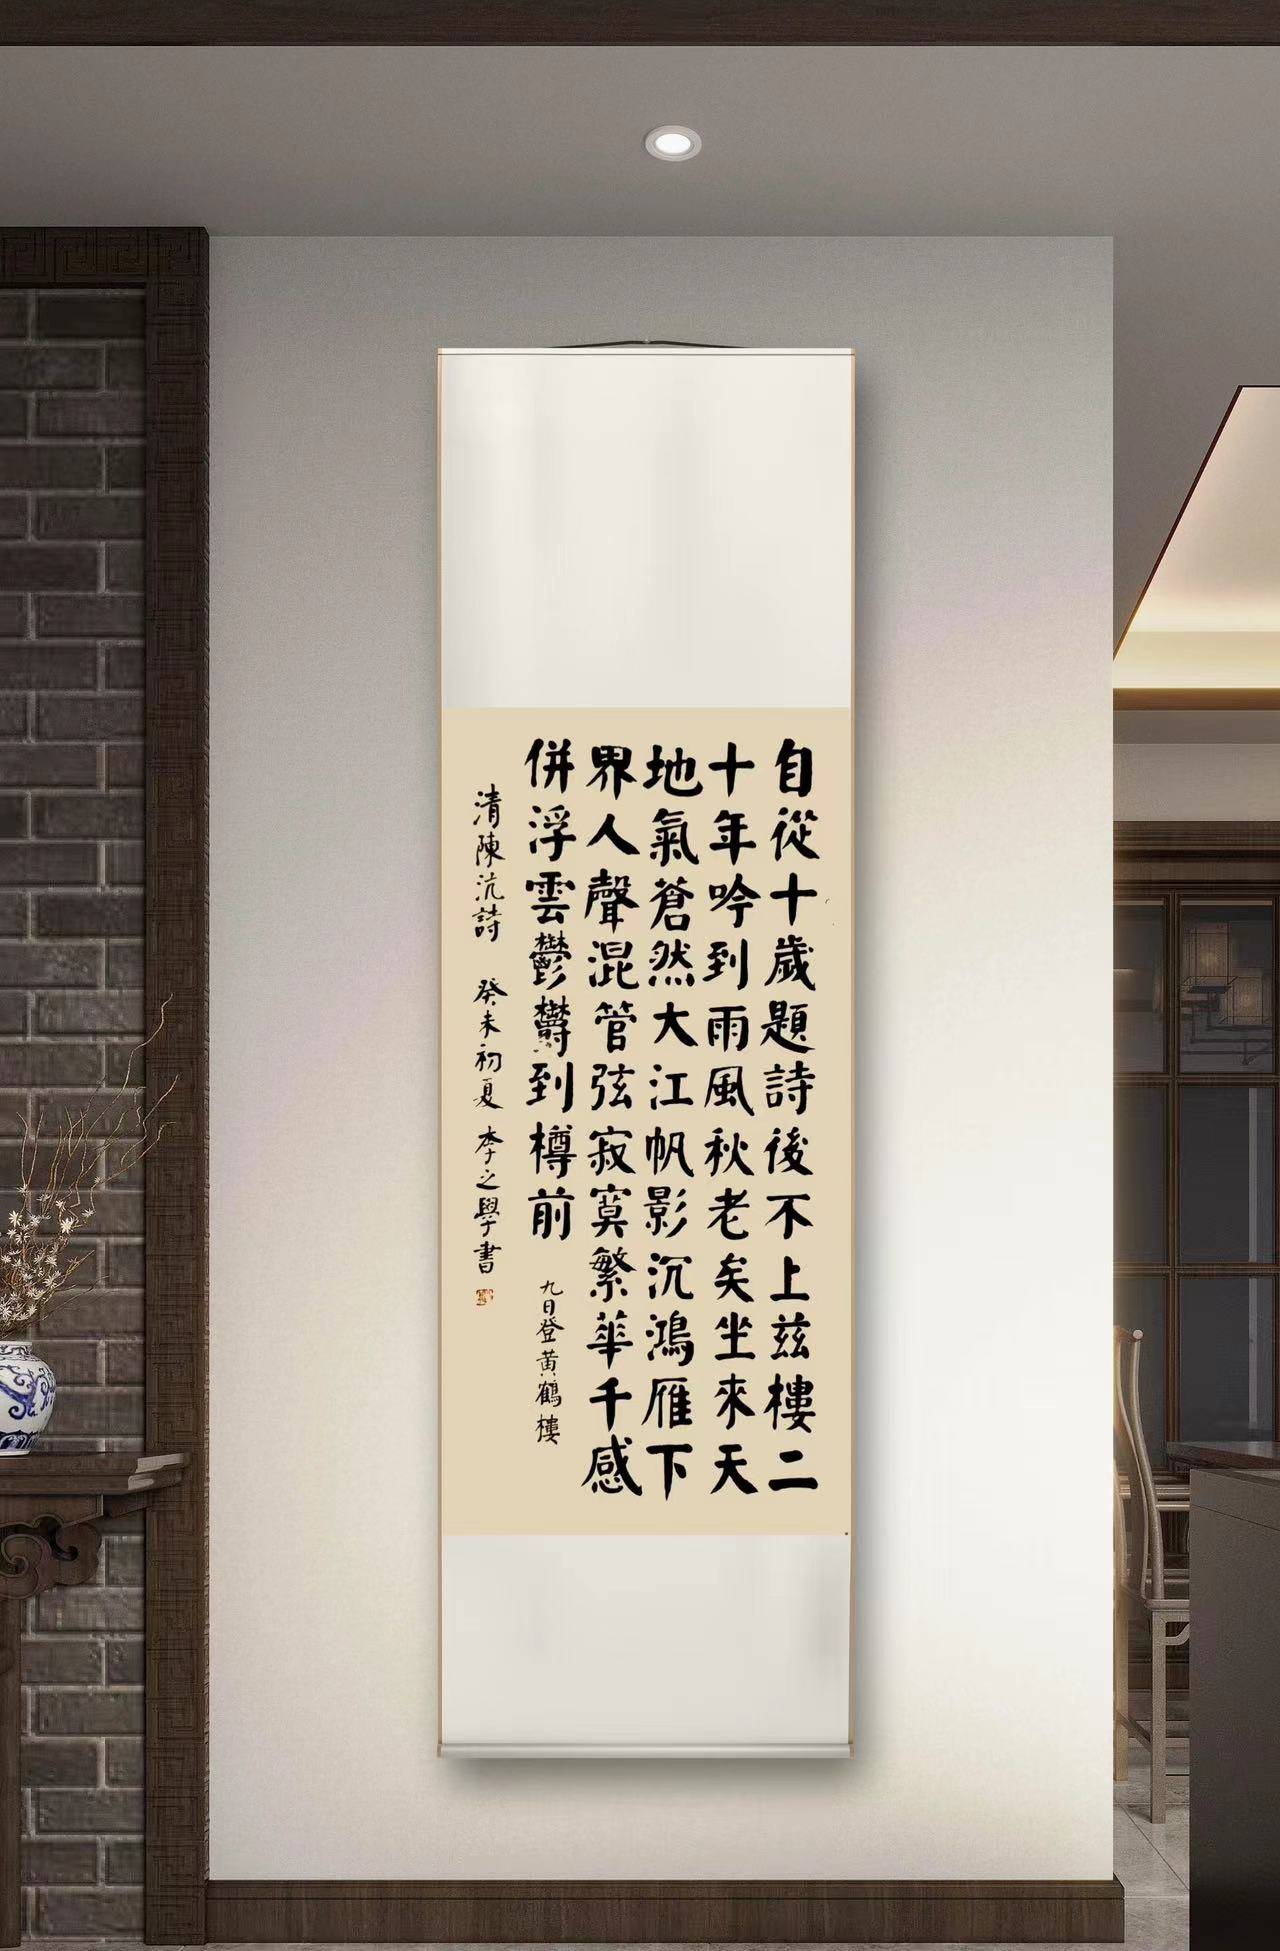 自從十歲題詩後不上茲樓二
十年吟到雨風秋老矣坐來天
地氣蒼然大江帆影沉鴻雁下
界人聲混管弦寂寞繁華千感
併浮雲鬱鬱到樽前
九日登黃鶴樓
清陳沆詩 癸未初夏 李之學書